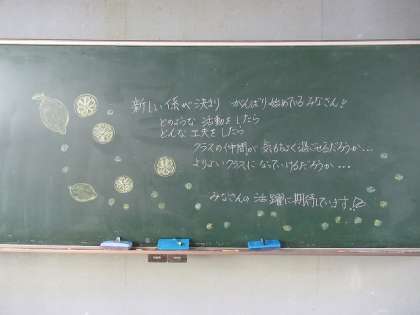 新しい係が決まり がんばり始めてるみなさん!
どのような活動をしたら
どんな工夫をしたら
クラスの仲間が気もちよく過ごせるだろうか…
よりよいクラスになっていけるだろうか…
みなさんの活躍に期待しています!!